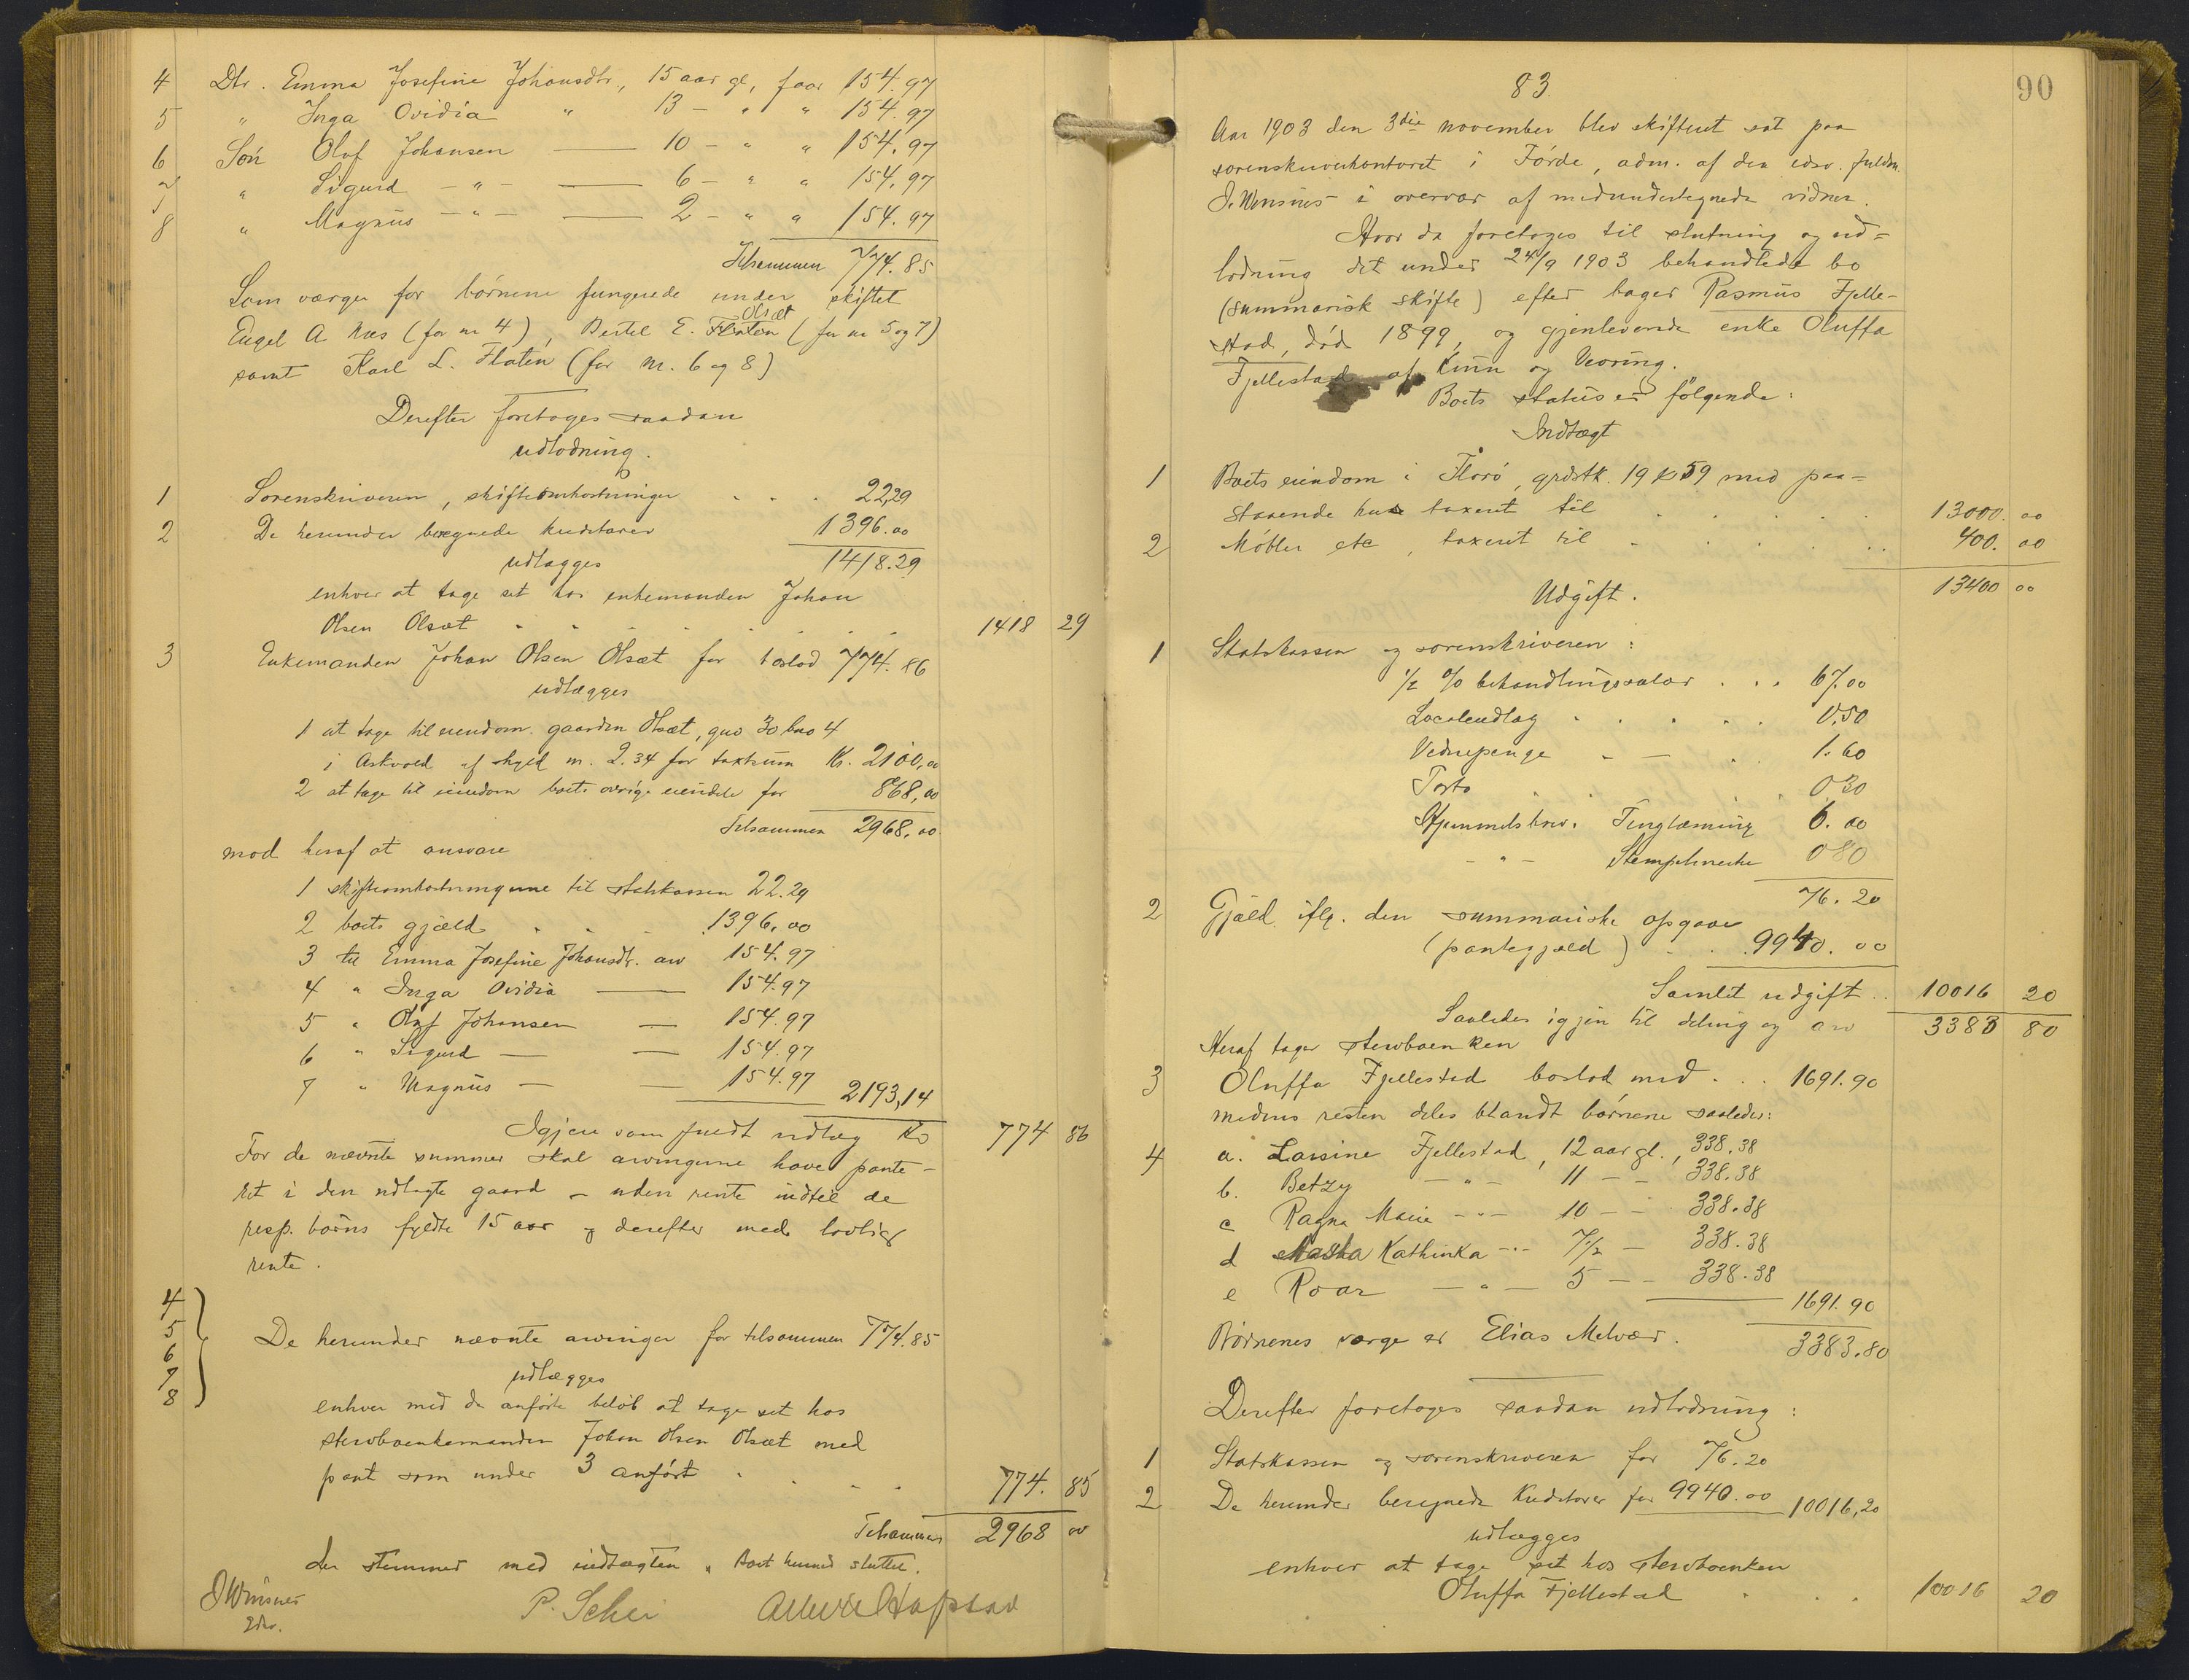 4 Dtr. Emma Josefine Johansdtr., 15 aar gl, faar 154.97
5 " Inga Ovidia " 13 - " " 154.97
6 Søn Olaf Johansen — 10 - " " 154.97
7 " Sigurd - " - — 6 - " " 154.97
8 " Magnus - " - — 2 - " " 154.97
Tilsammen 774.85
Som værger for børnene fungerede under skiftet
Engel A Næs (for nr 4), Bertel E. Flaten Olsæt (for nr 5 og 7)
samt Karl L. Flaten (for nr. 6 og 8)
Derefter foretoges saadan
udlodning.
1 Sorenskriveren, skifteomkostninger . . . 22,29
2 De herunder beregnede kreditorer 1396.00
udlægges 1418.29
enhver at tage sit hos enkemanden Johan
Olsen Olsæt . . . . . . . 1418 29
3 Enkemanden Johan Olsen Olsæt for boslod 774.86
udlægges
1 at tage til eiendom gaarden Olsæt, gno 30 bno 4
i Askvold af skyld m. 2.34 for taxtsum Kr. 2100,00
2 at tage til eiendom boets øvrige eiendele for 868,00
Tilsammen 2968,00
mod heraf at ansvare
1 skifteomkostningerne til statskassen 22.29
2 boets gjæld . . . 1396,00
3 til Emma Josefine Johansdtr. arv 154.97
4 " Inga Ovidia — 154.97
5 " Olaf Johansen — 154.97
6 " Sigurd — — 154.97
7 " Magnus — — 154.97 2193,14
Igjen som fuldt udlæg Kr 774 86
For de nævnte summer skal arvingerne have pante-
ret i den udlagte gaard - uden rente indtil de
resp. børns fyldte 15 aar og derefter med lovlig
rente.
4
5
6
7
8
De herunder nævnte arvinger for tilsammen 774.85
udlægges
enhver med de anførte beløb at tage sit hos
stervboenkemanden Johan Olsen Olsæt med
pant som under 3 anført . . . 774. 85
Tilsammen 2968 00
der stemmer med indtægten. Boet hermed sluttet.
J Winsnes
edsv.
P. Schei
90
83.
Aar 1903 den 3die november blev skifteret sat paa
sorenskriverkontoret i Førde, adm. af den edsv. fuldm.
J. Winsnes i overvær af medundertegnede vidner.
Hvor da foretoges til slutning og ud=
lodning det under 24/9 1903 behandlede bo
(summarisk skifte) efter bager Rasmus Fjelle-
stad, død 1899, og gjenlevende enke Oluffa
Fjellestad af Kinn og Vevring.
Boets status er følgende:
Indtægt
1 Boets eiendom i Florø, grdstk. 19 & 59 med paa=
staaende huse taxeret til . . . . . 13000. 00
2 Møbler etc, taxeret til . . . . . 400. 00
13400 00
Udgift.
1 Statskassen og sorenskriveren:
1/2 % behandlingssalær . . . 67.00
Localeudlæg . . . . . 0.50
Vidnepenge . - . . 1.60
Porto . . . . 0 30
Hjemmelsbrev. Tinglæsning 6.00
- " - Stempelmerke 0 80
76.20
2 Gjæld iflg. den summariske opgave
(pantegjæld) . . 9940.00
Samlet udgift . . 10016 20
Saaledes igjen til deling og arv 3383 80
Heraf tager stervboenken
3 Oluffa Fjellestad boslod med . . . 1691.90
medens resten deles blandt børnene saaledes:
4 a. Larsine Fjellestad, 12 aar gl., 338.38
b. Betzy - " - 11 - - 338.38
c Ragna Marie - " - 10 - - 338.38
d Kathinka - " - 7 1/2 - 338.38
e Roar - " - 5 - - 338.38
1691.90
Børnenes værge er Elias Melvær. 3383.80
Derefter foretoges saadan udlodning:
1 Statskassen og sorenskriveren for 76.20
2 De herunder beregnede Kreditorer for 9940.00 10016,20
udlægges
enhver at tage sit hos stervboenken
Oluffa Fjellestad . . . 10016 20